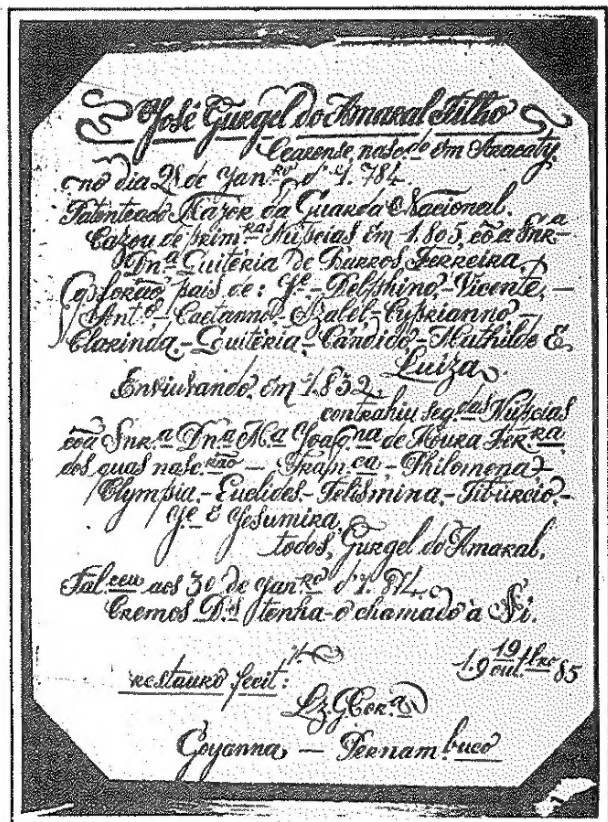 José Gurgel do Amaral Filho
Cearense, nasc.do em Aracaty,
no dia 21 de Jan.ro d' 1.784.
Patenteado Major da Guarda Nacional.
Cazou de prim.ra Núpcias em 1.805, cõ a Snr.a
Dn.a Quitéria de Barros Ferreira,
pais de: J.e - Delphino, - Vicente, -
Ant.o - Caetanno, - Izabel - Cyprianno -
Clarinda, - Quitéria - Cândido - Mathilde E
Luiza.
Enviuvando, em 1.832,
contrahiu seg.das Núpcias
cõ a Snr.a Dn.a M.a Joaq.na de Moura Fer.ra,
dos quas nasc.rão - Fran.ca, - Philomena -
Olympia, - Euclides - Felismina, - Tibúrcio, -
J.e E Jesumira,
todos, Gurgel do Amaral.
Fal.ceu aos 30 de Jan.ro d' 1.874.
Cremos D.s tenha-o chamado à Si.
19
1.9 out.bro 85
restauro fecit:
Lz. G. Cor.a
Goyanna, — Pernambuco